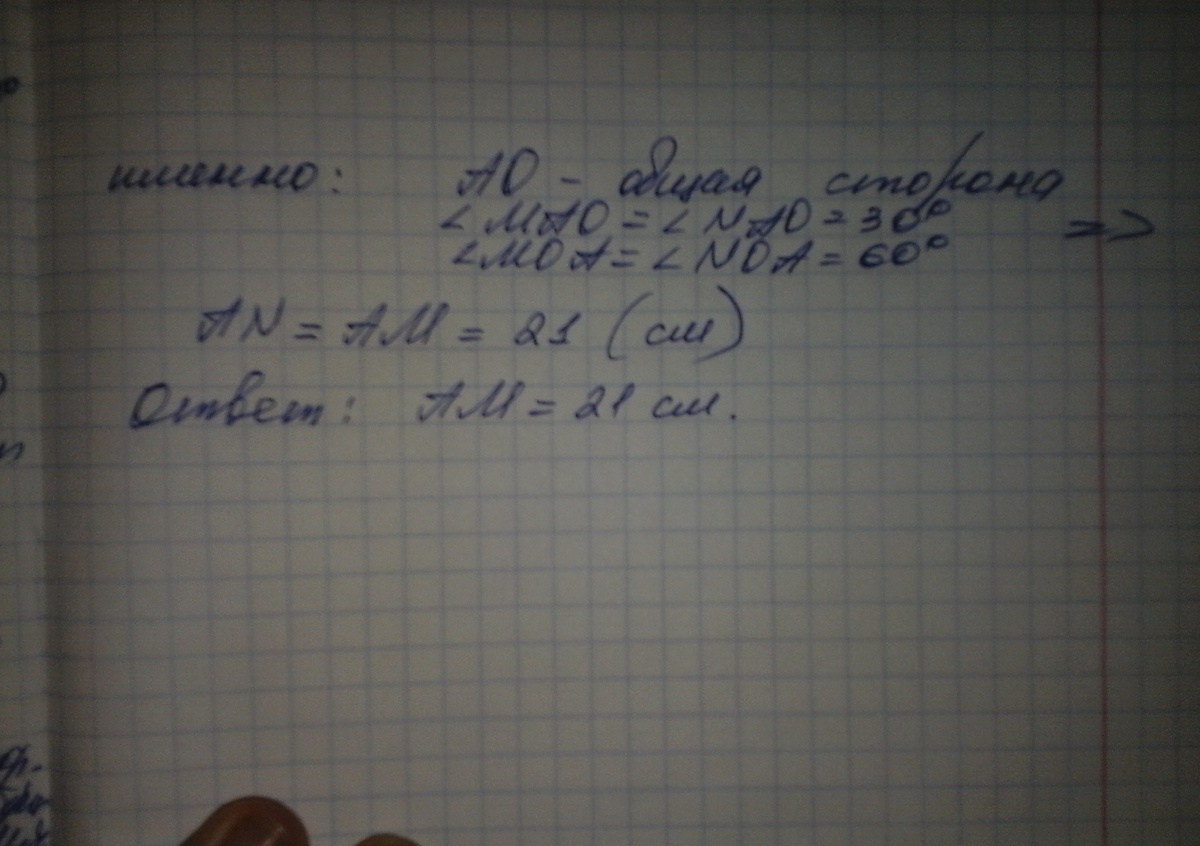 именно: AO - общая сторона
∠MAO = ∠NAO = 30° =>
∠MOA = ∠NOA = 60°
AN = AM = 21 (см)
Ответ: AM = 21 см.